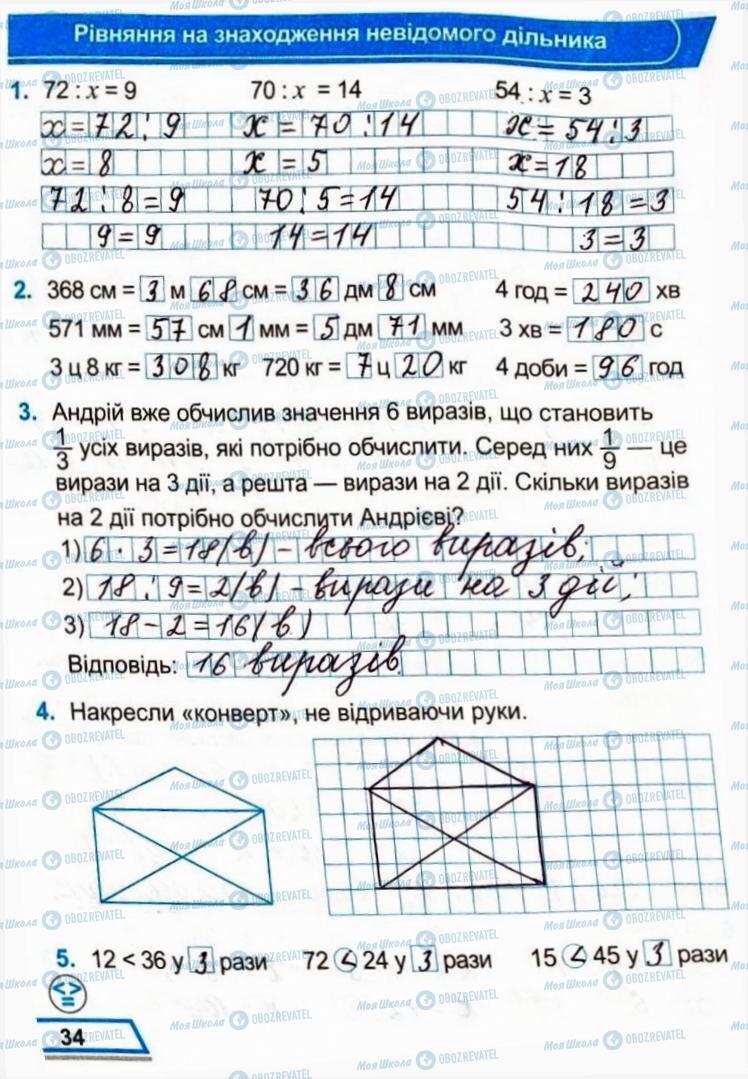 Рівняння на знаходження невідомого дільника
1. 72 : x = 9 70 : x = 14 54 : x = 3
x = 72 : 9 x = 70 : 14 x = 54 : 3
x = 8 x = 5 x = 18
72 : 8 = 9 70 : 5 = 14 54 : 18 = 3
9 = 9 14 = 14 3 = 3
2. 368 см = 3 м 68 см = 36 дм 8 см 4 год = 240 хв
571 мм = 57 см 1 мм = 5 дм 71 мм 3 хв = 180 с
3 ц 8 кг = 308 кг 720 кг = 7 ц 20 кг 4 доби = 96 год
3. Андрій вже обчислив значення 6 виразів, що становить
1/3 усіх виразів, які потрібно обчислити. Серед них 1/9 — це
вирази на 3 дії, а решта — вирази на 2 дії. Скільки виразів
на 2 дії потрібно обчислити Андрієві?
1) 6 · 3 = 18 (в) - всього виразів;
2) 18 : 9 = 2 (в) - вирази на 3 дії;
3) 18 - 2 = 16 (в)
Відповідь: 16 виразів.
4. Накресли «конверт», не відриваючи руки.
5. 12 < 36 у 3 рази 72 < 24 у 3 рази 15 < 45 у 3 рази
< >
=
34